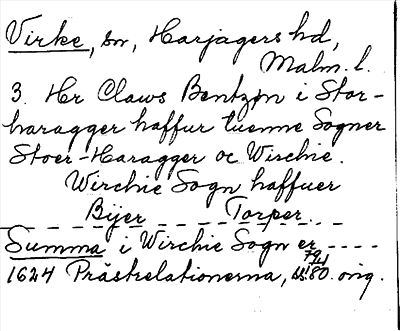 Virke, sn, Harjagers hd,
Malm. l.
3. Hr Claws Bentzøn i Stor-
haragger haffur tuenne Sogner
Stoer-Haragger oc Wirchie.
Wirchie Sogn haffuer
Bÿer _ _ _ _ Torper. _ _
Summa i Wirchie Sogn er ----
1624 Prästrelationerna, s. 80. orig.